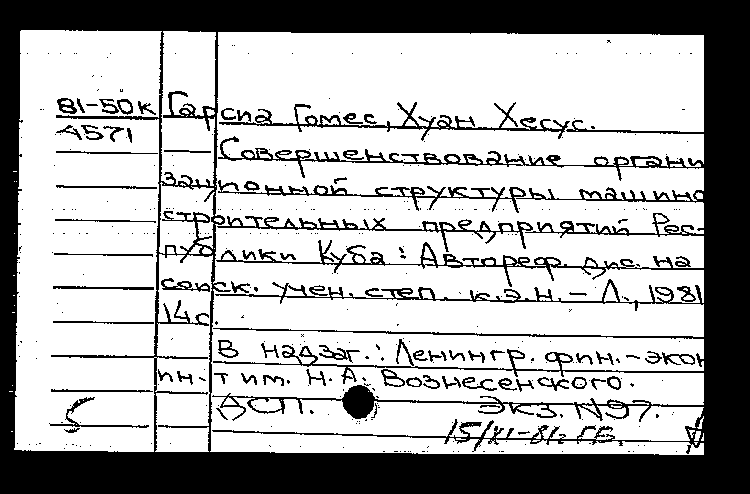 81-50к Гарсиа Гомес, Хуан Хесус.
А571
Совершенствование органи
зационной структуры машино
строительных предприятий Рес-
публики Куба: Автореф. дис. на
соиск. учен. степ. к.э.н. - Л., 1981
14с.
В надзаг.: Ленингр. фин.-экон
ин-т им. Н.А. Вознесенского.
ДСП. Экз. N97.
5
15/XI-81г. ГБ.